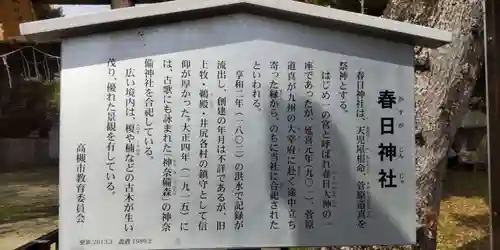 春日神社
かすがじんじゃ
春日神社は、天児屋根命、菅原道真を
祭神とする。
はじめ一の宮と呼ばれ春日大神の一
座であったが、延喜元年(九〇一)、菅原
道真が九州の大宰府に赴く途中立ち
寄った縁から、のちに当社に合祀された
といわれる。
享和二年(一八〇二)の洪水で記録が
流出し、創建の年月は不詳であるが、旧
上牧・鵜殿・井尻各村の鎮守として信
仰が厚かった。大正四年(一九一五)に
は、古歌にも詠まれた「神奈備森」の神奈
備神社を合祀している。
広い境内は、榎や楠などの古木が生い
茂り、優れた景観を有している。
高槻市教育委員会
更新/2013.3 設置/1989.2